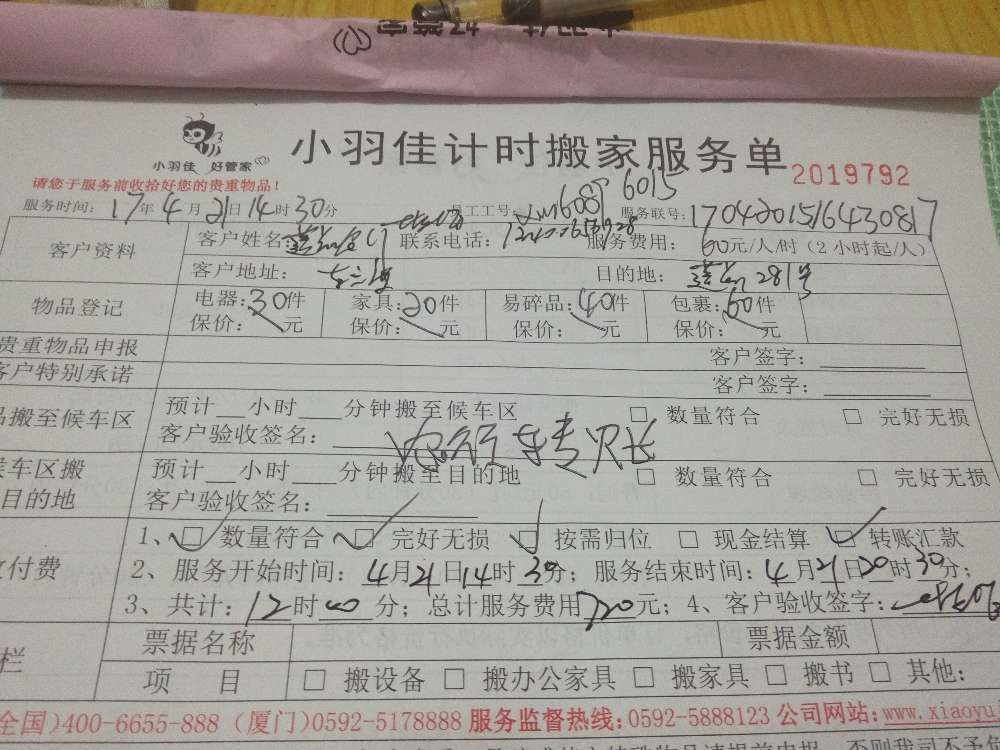 小羽佳 好管家
小羽佳计时搬家服务单 2019792
请您于服务前收拾好您的贵重物品！
服务时间：17年4月21日14时30分 员工工号： 6015 服务联号：1704201516430817
客户资料 客户姓名： 联系电话： 服务费用：60元/人/时（2小时起/人）
客户地址： 目的地： 281号
物品登记 电器：30件 家具：20件 易碎品：40件 包裹：60件
保价： 元 保价： 元 保价： 元 保价： 元
贵重物品申报 客户签字：
客户特别承诺 客户签字：
品搬至候车区 预计__小时___分钟搬至候车区 □ 数量符合 □ 完好无损
客户验收签名：
候车区搬 预计__小时___分钟搬至目的地 □ 数量符合 □ 完好无损
目的地 客户验收签名：
付费 1、□ 数量符合 □ 完好无损 □ 按需归位 □ 现金结算 □ 转账汇款
2、服务开始时间：4月21日14时30分；服务结束时间：4月21日20时30分；
3、共计：12时00分；总计服务费用720元；4、客户验收签字：
栏 票据名称 票据金额
项 目 □ 搬设备 □ 搬办公家具 □ 搬家具 □ 搬书 □ 其他：
全国)400-6655-888 (厦门)0592-5178888 服务监督热线：0592-5888123 公司网站：www.xiaoyu